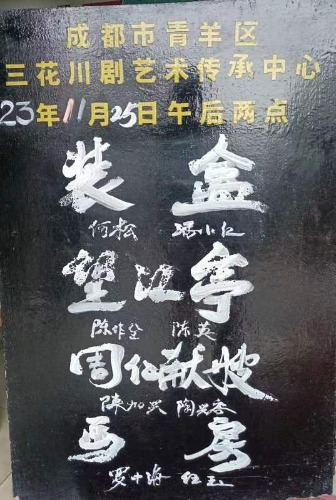 成都市青羊区
三花川剧艺术传承中心
23年11月25日午后两点
装 盒
何松 冯小仁
望江亭
陈作全 陈英
周仁献嫂
陈加兴 陶兴容
马房
罗中海 红玉